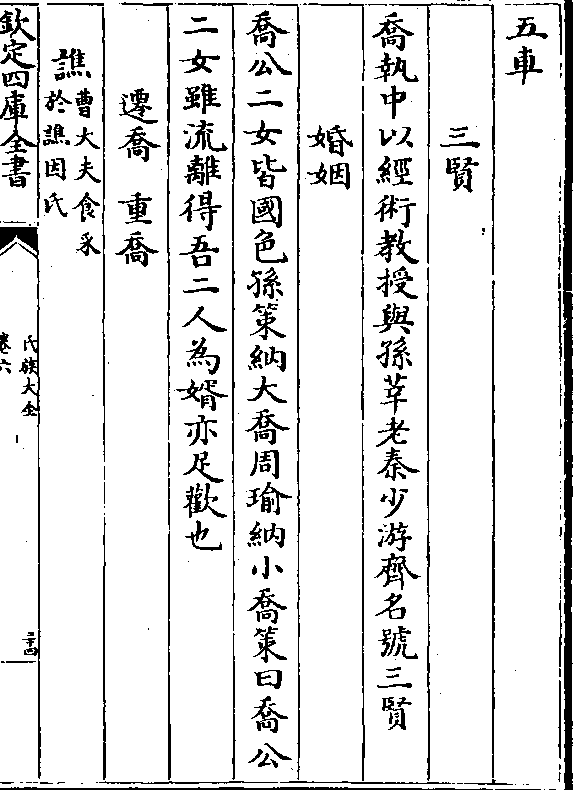 五車
三賢
喬執中以經術教授與孫莘老秦少游齊名號三賢
婚姻
喬公二女皆國色孫策納大喬周瑜納小喬策曰喬公
二女雖流離得吾二人為婿亦足歡也
遷喬　重喬
譙曹大夫食采
於譙因氏
欽定四庫全書
氏族大全
卷六
二十四